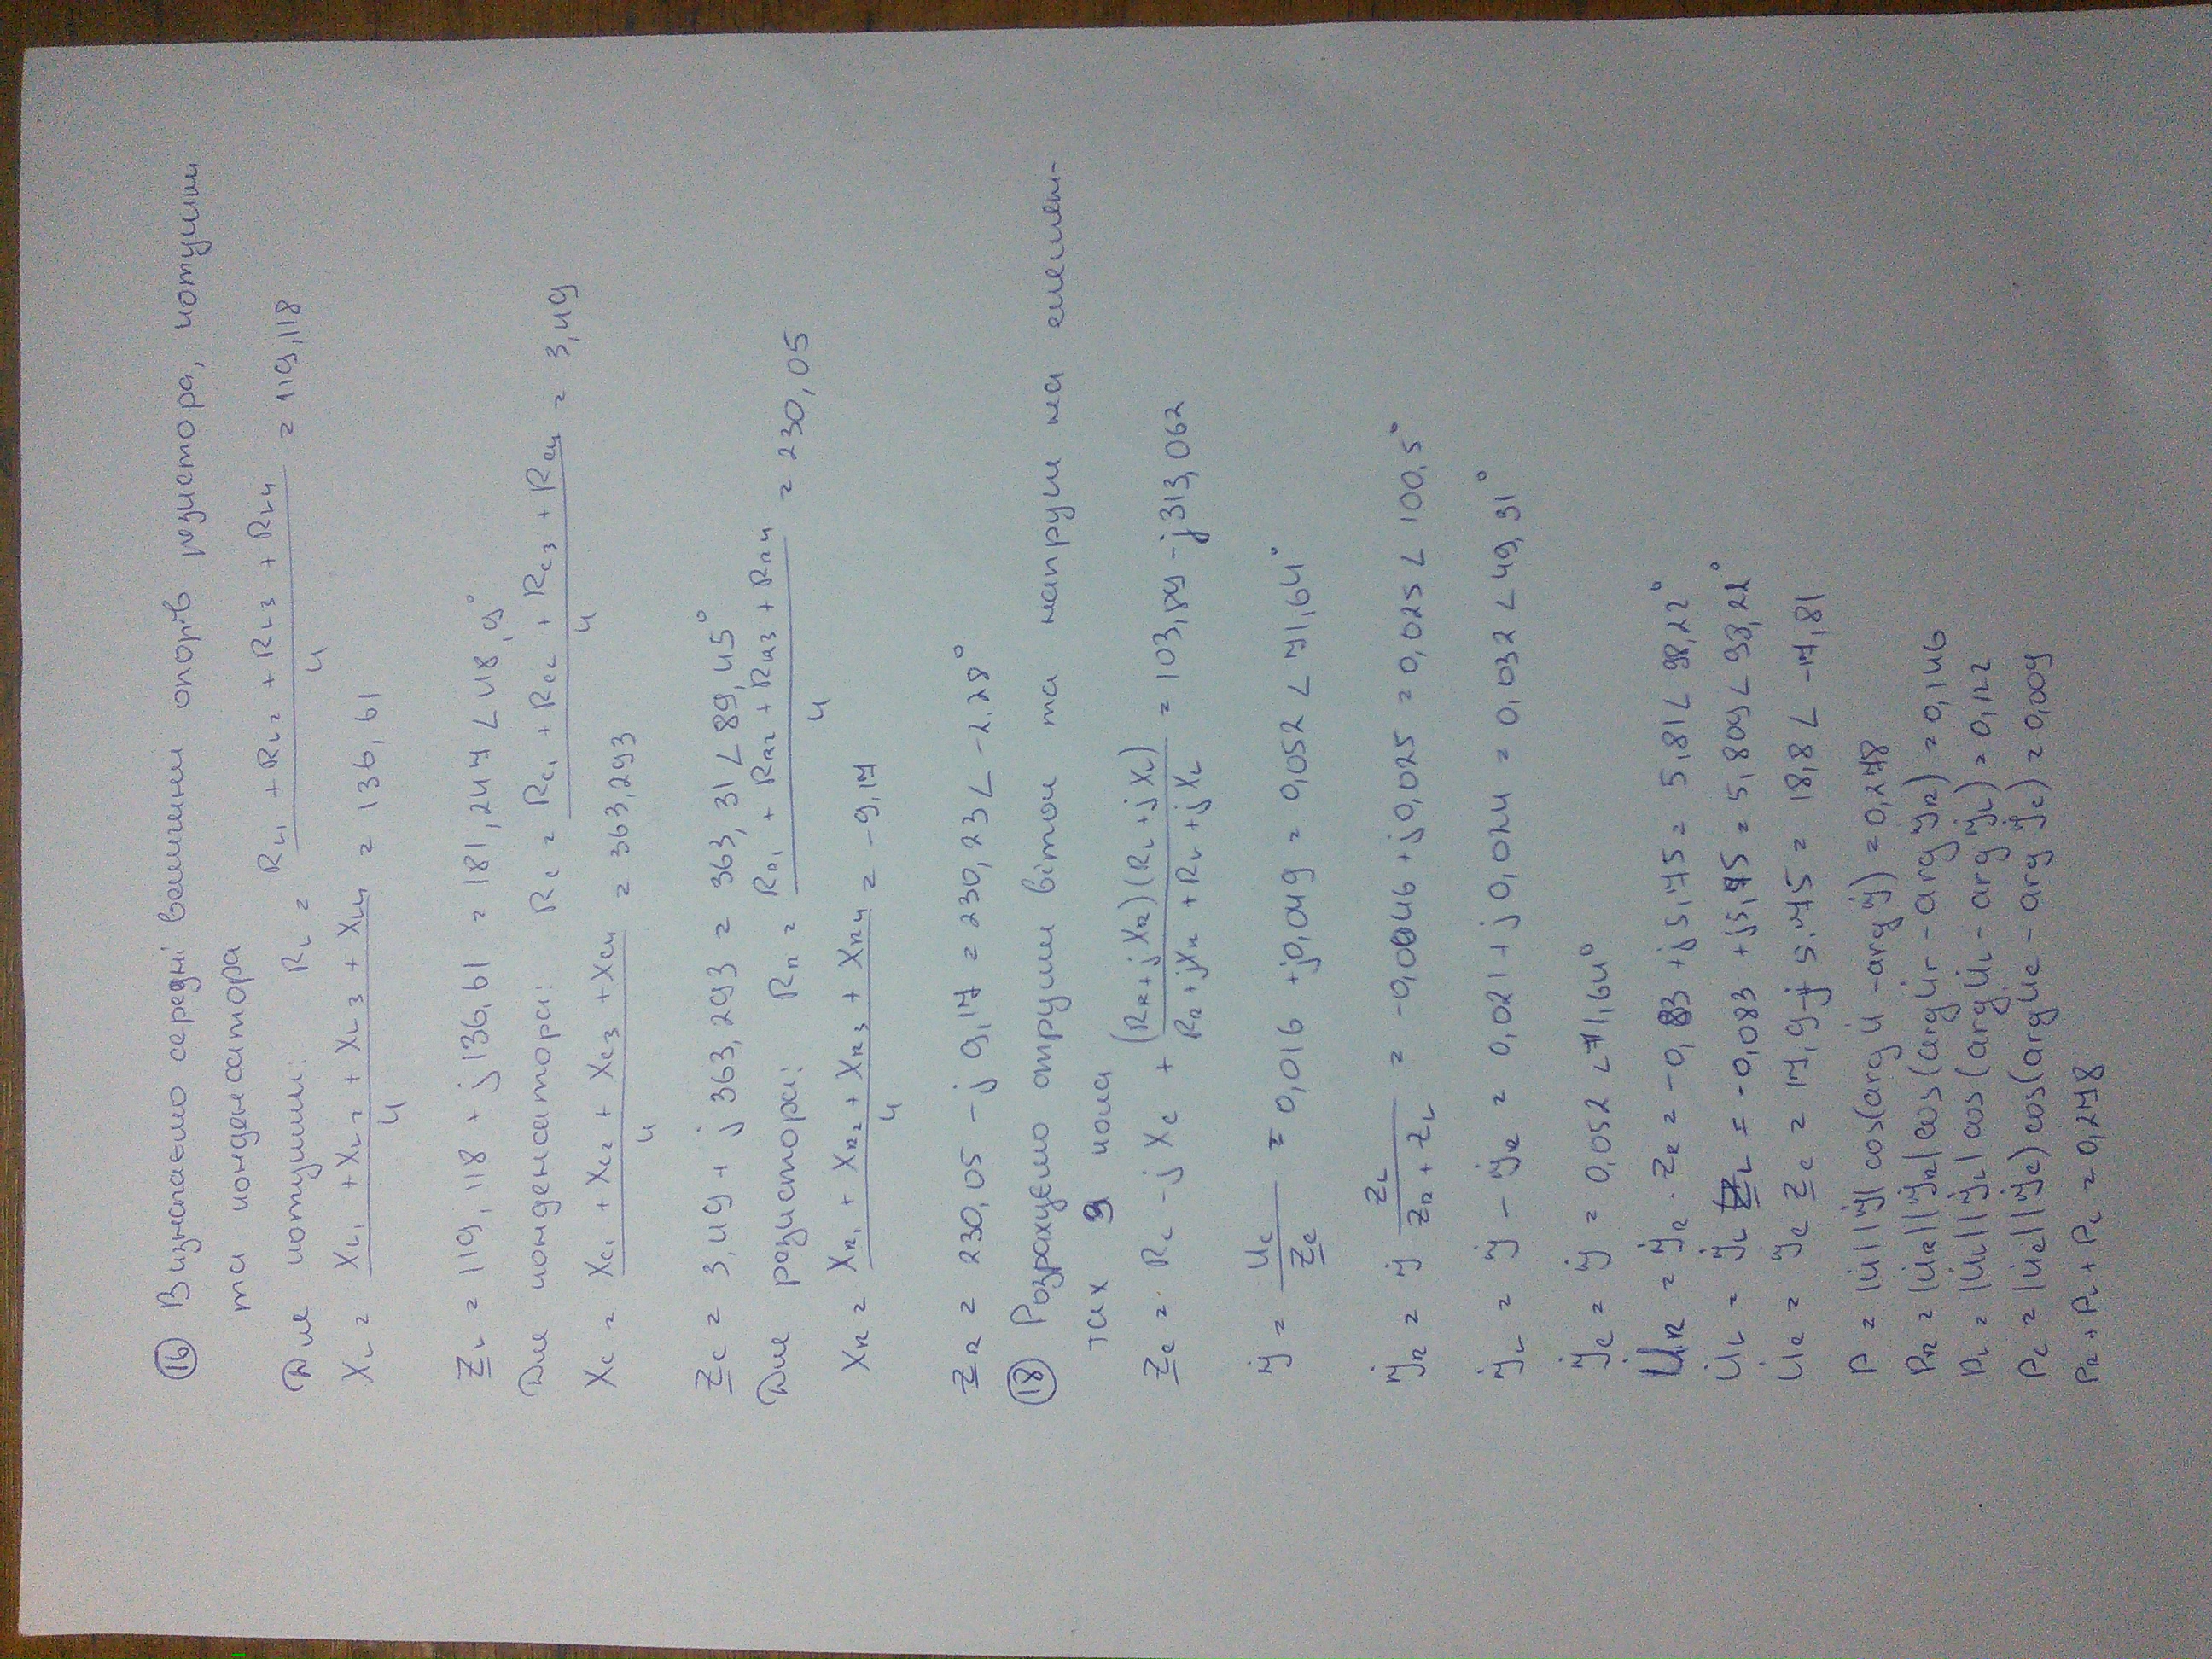 (16) Визначаємо середні величини опорів резистора, котушки
та конденсатора
Для котушки: R_L = (R_L1 + R_L2 + R_L3 + R_L4) / 4 = 119,118
X_L = (X_L1 + X_L2 + X_L3 + X_L4) / 4 = 136,61
Z_L = 119,118 + j 136,61 = 181,247 ∠ 48,9°
Для конденсатора: R_C = (R_C1 + R_C2 + R_C3 + R_C4) / 4 = 3,49
X_C = (X_C1 + X_C2 + X_C3 + X_C4) / 4 = 363,293
Z_C = 3,49 + j 363,293 = 363,31 ∠ 89,45°
Для резистора: R_R = (R_R1 + R_R2 + R_R3 + R_R4) / 4 = 230,05
X_R = (X_R1 + X_R2 + X_R3 + X_R4) / 4 = -9,17
Z_R = 230,05 - j 9,17 = 230,23 ∠ -2,28°
(18) Розрахуємо струми віток та напруги на елемен-
тах кола
Z_C = R_C - j X_C + (R_R + j X_R)(R_L + j X_L) / (R_R + j X_R + R_L + j X_L) = 103,89 - j 313,062
İ = U_C / Z_C = 0,016 + j0,049 = 0,052 ∠ 71,64°
İ_R = İ Z_L / (Z_R + Z_L) = -0,0046 + j0,025 = 0,025 ∠ 100,5°
İ_L = İ - İ_R = 0,021 + j 0,024 = 0,032 ∠ 49,31°
İ_C = İ = 0,052 ∠ 71,64°
U̇_R = İ_R · Z_R = -0,83 + j 5,75 = 5,81 ∠ 98,22°
U̇_L = İ_L Z_L = -0,083 + j5,75 = 5,809 ∠ 98,22°
U̇_C = İ_C Z_C = 17,9 - j 5,75 = 18,8 ∠ -17,81
P = |U̇| |İ| cos(arg U̇ - arg İ) = 0,278
P_R = |U̇_R| |İ_R| cos(arg U̇_r - arg İ_R) = 0,146
P_L = |U̇_L| |İ_L| cos(arg U̇_L - arg İ_L) = 0,122
P_C = |U̇_C| |İ_C) cos(arg U_C - arg İ_C) = 0,009
P_R + P_L + P_C = 0,278